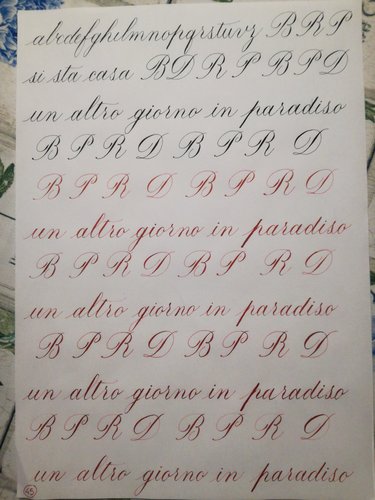 abcdefghilmnopqrstuvz B R P
si sta casa B D R P B P D
un altro giorno in paradiso
B P R D B P R D
B P R D B P R D
un altro giorno in paradiso
B P R D B P R D
un altro giorno in paradiso
B P R D B P R D
un altro giorno in paradiso
B P R D B P R D
un altro giorno in paradiso